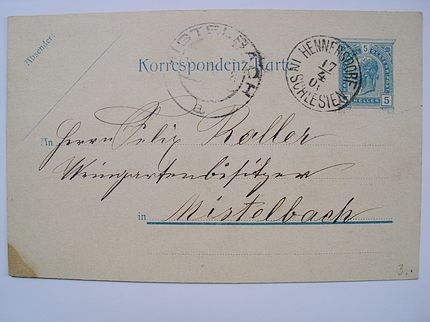 Absender:
Korrespondenz-Karte
MISTELBACH
a
HENNERSDORF IN SCHLESIEN
17
4
5
5
HELLER
5
An Herrn Felix Koller
Weingartenbesitzer
in Mistelbach
3.-